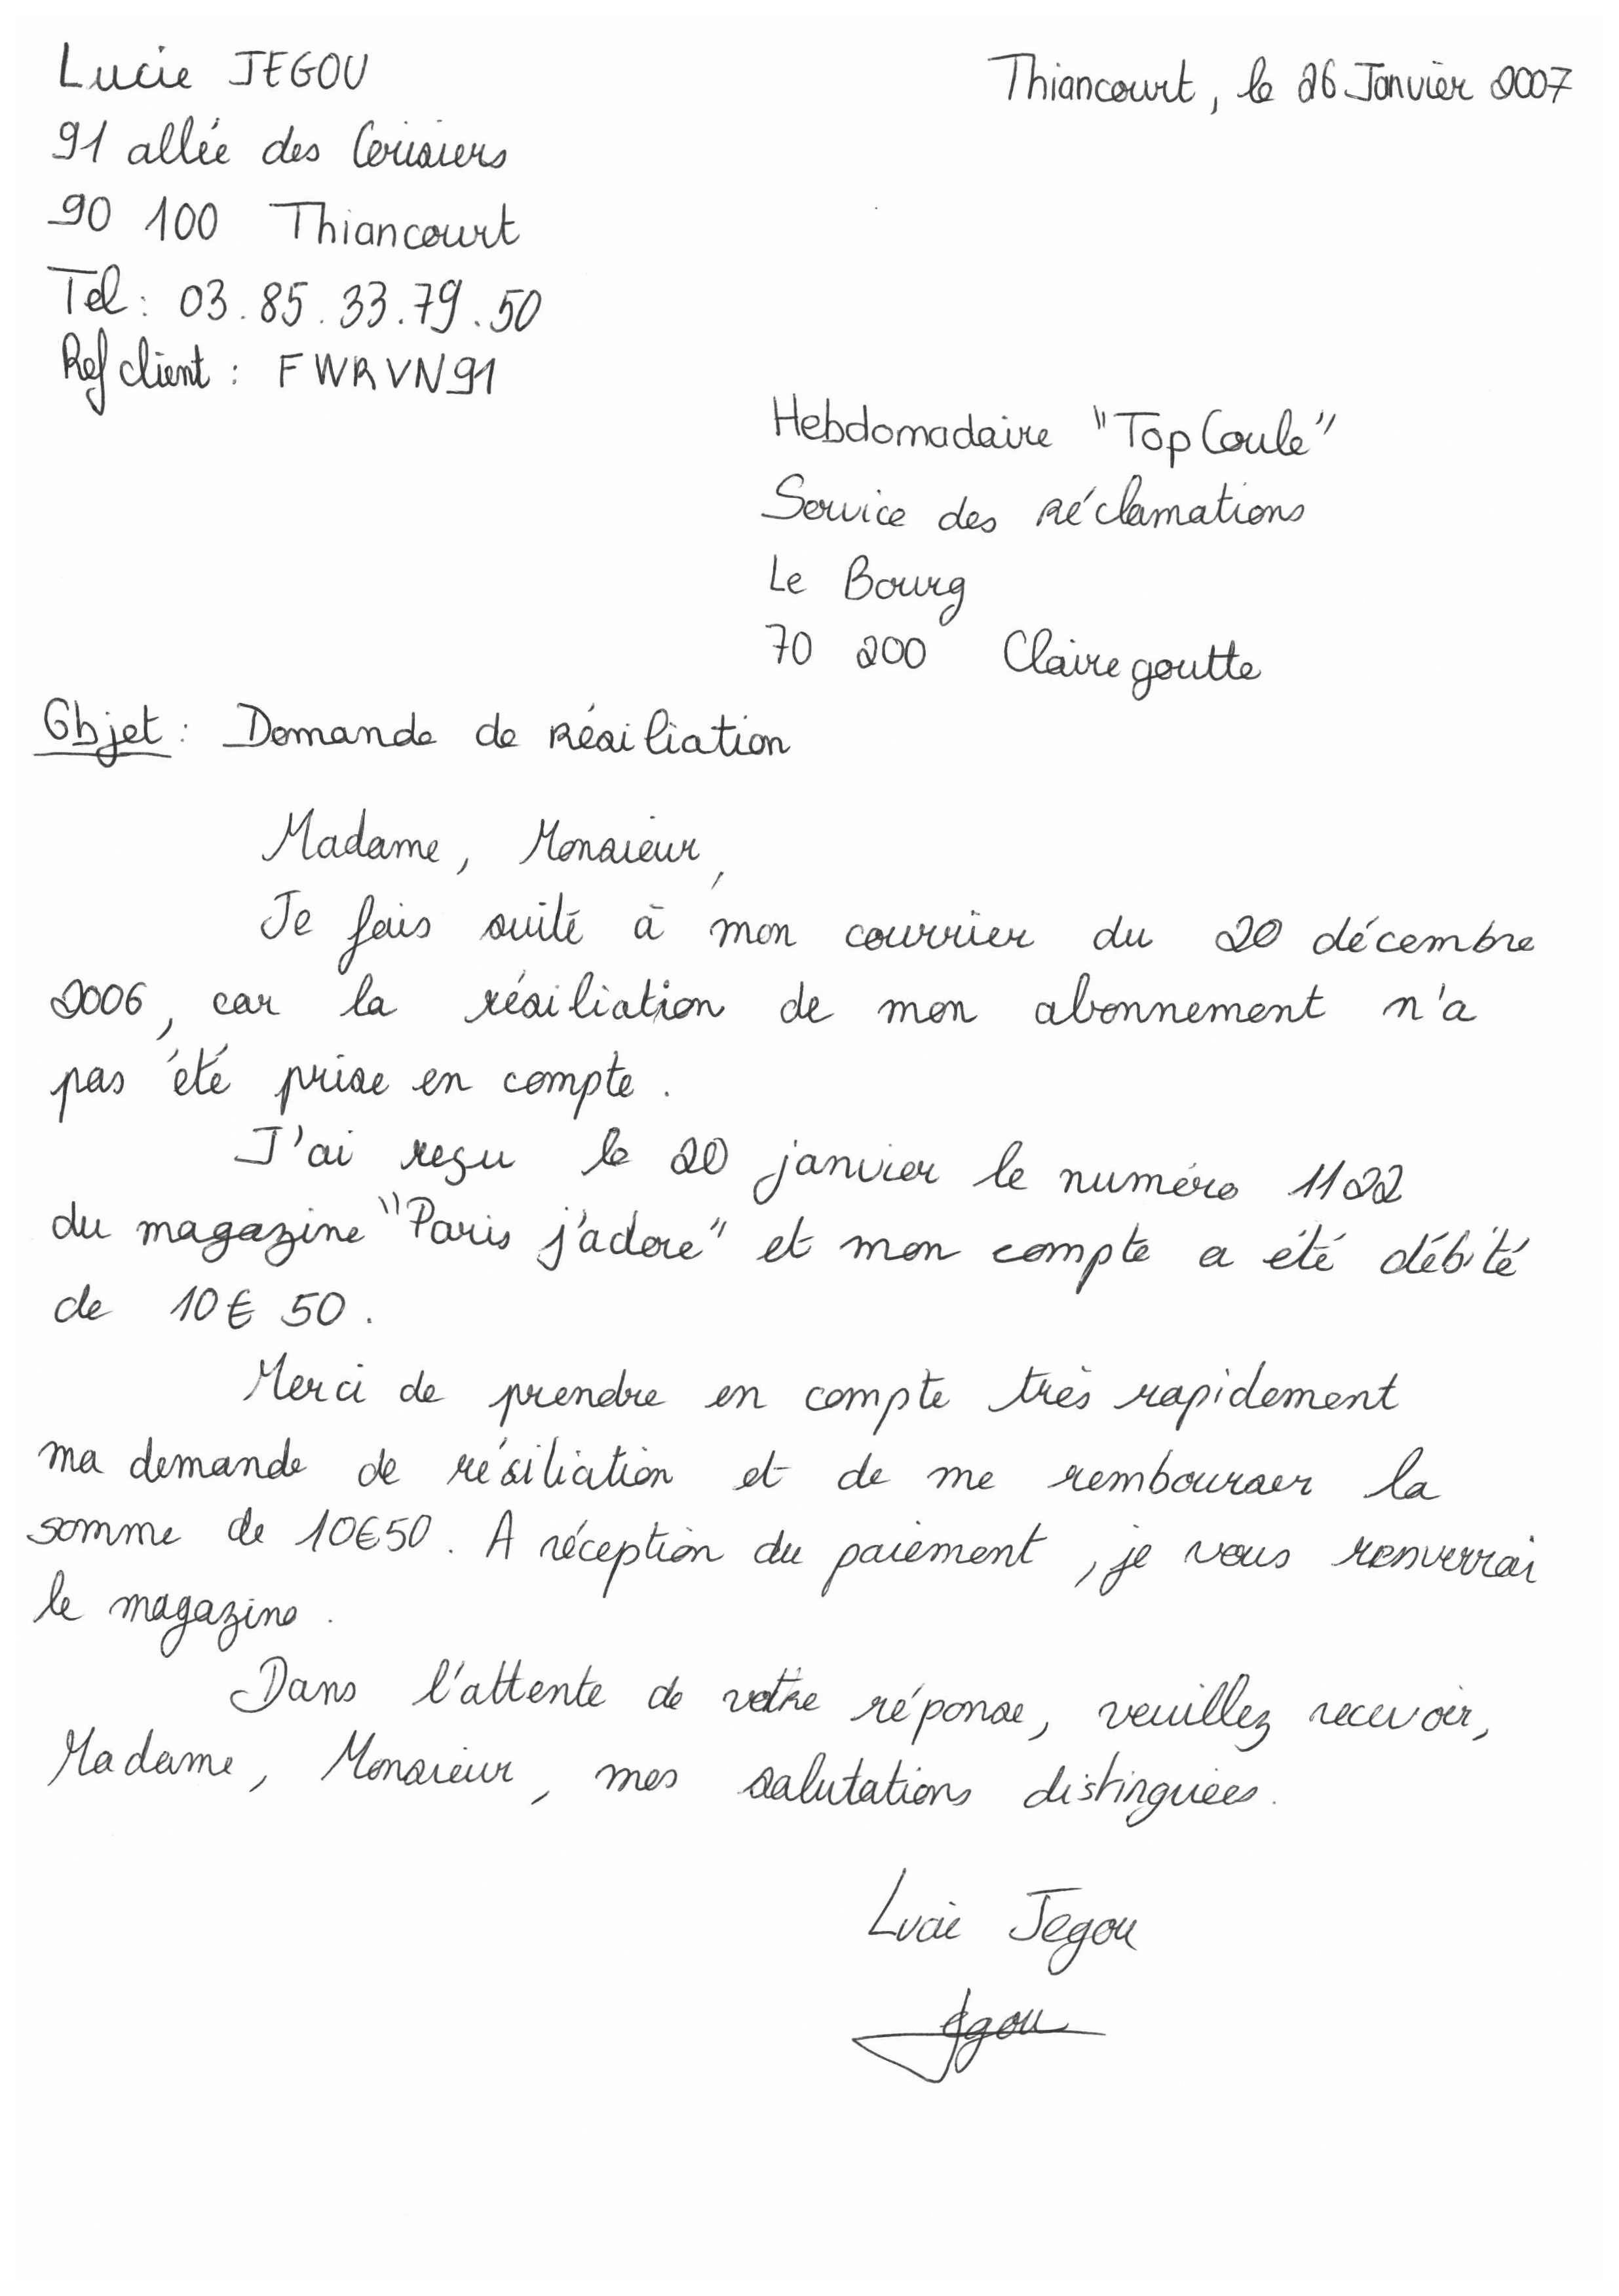 Lucie JEGOU
Thiancourt, le 26 Janvier 2007
91 allée des Cerisiers
90 100 Thiancourt
Tel : 03.85.33.79.50
Ref client : FWRVN91
Hebdomadaire "Top Coule"
Service des Réclamations
Le Bourg
70 200 Clairegoutte
Objet : Demande de Résiliation
Madame, Monsieur,
Je fais suite à mon courrier du 20 décembre
2006, car la résiliation de mon abonnement n'a
pas été prise en compte.
J'ai reçu le 20 janvier le numéro 1122
du magazine "Paris j'adore" et mon compte a été débité
de 10€ 50.
Merci de prendre en compte très rapidement
ma demande de résiliation et de me rembourser la
somme de 10€50. A réception du paiement, je vous renverrai
le magazine.
Dans l'attente de votre réponse, veuillez recevoir,
Madame, Monsieur, mes salutations distinguées.
Lucie Jegou
Jegou